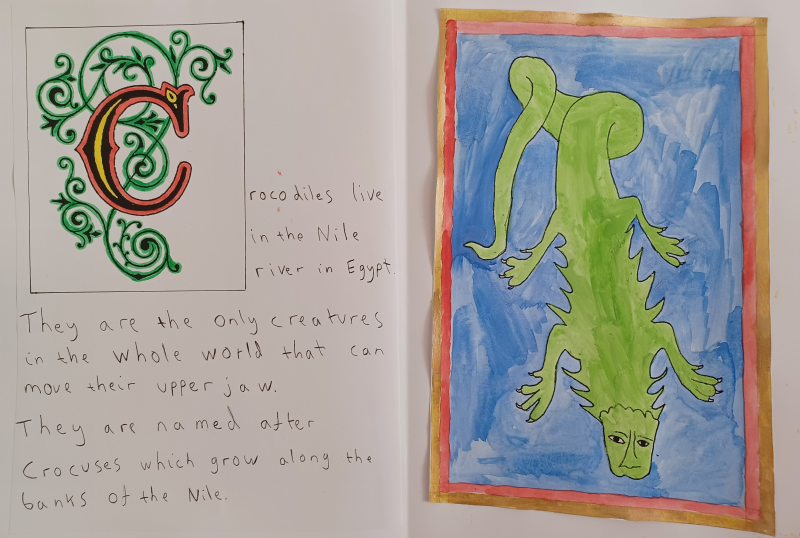 Crocodiles live
in the Nile
river in Egypt.
They are the only creatures
in the whole world that can
move their upper jaw.
They are named after
Crocuses which grow along the
banks of the Nile.